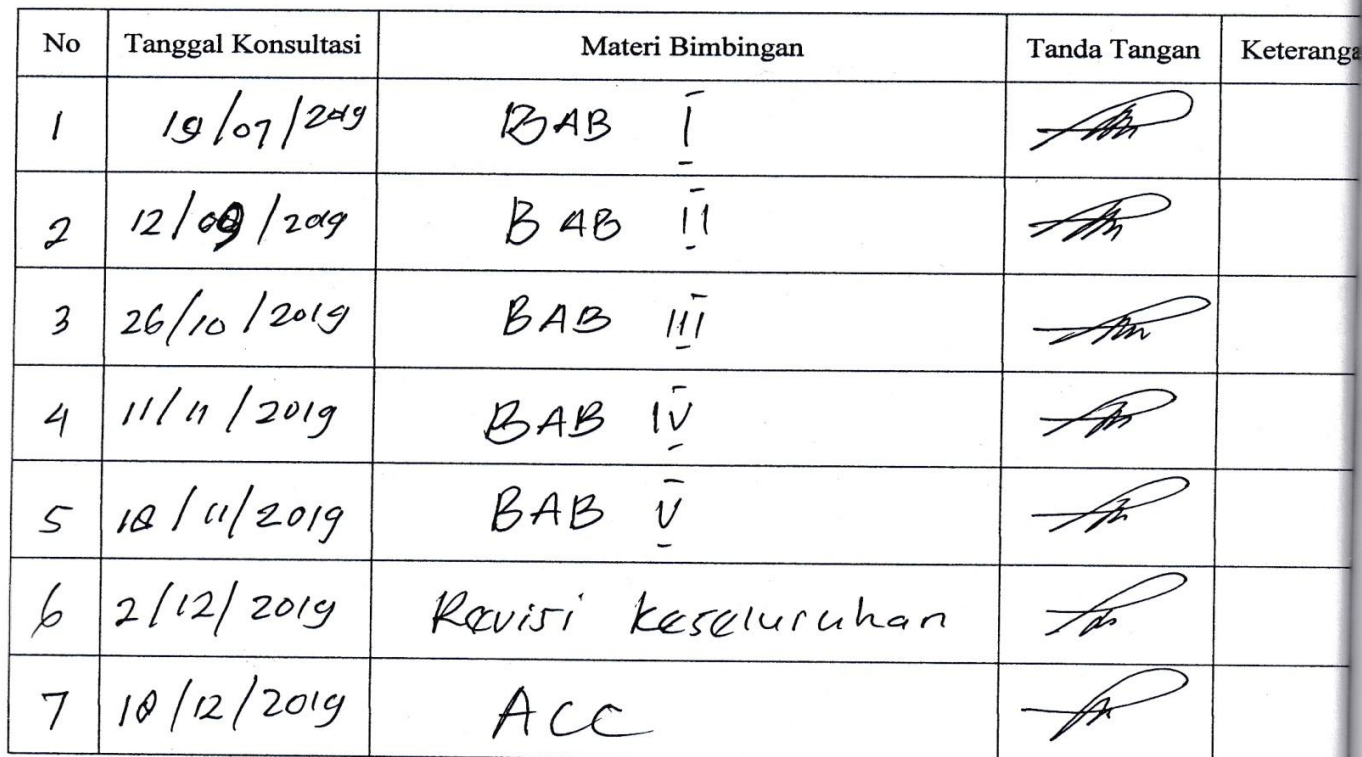 No Tanggal Konsultasi Materi Bimbingan Tanda Tangan Keteranga
1 19/07/2019 BAB I
2 12/09/2019 BAB II
3 26/10/2019 BAB III
4 11/11/2019 BAB IV
5 18/11/2019 BAB V
6 2/12/2019 Revisi keseluruhan
7 18/12/2019 ACC